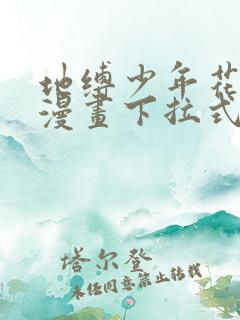 地缚少年花
漫畫下拉式
塔尔登
未经同意禁止转载